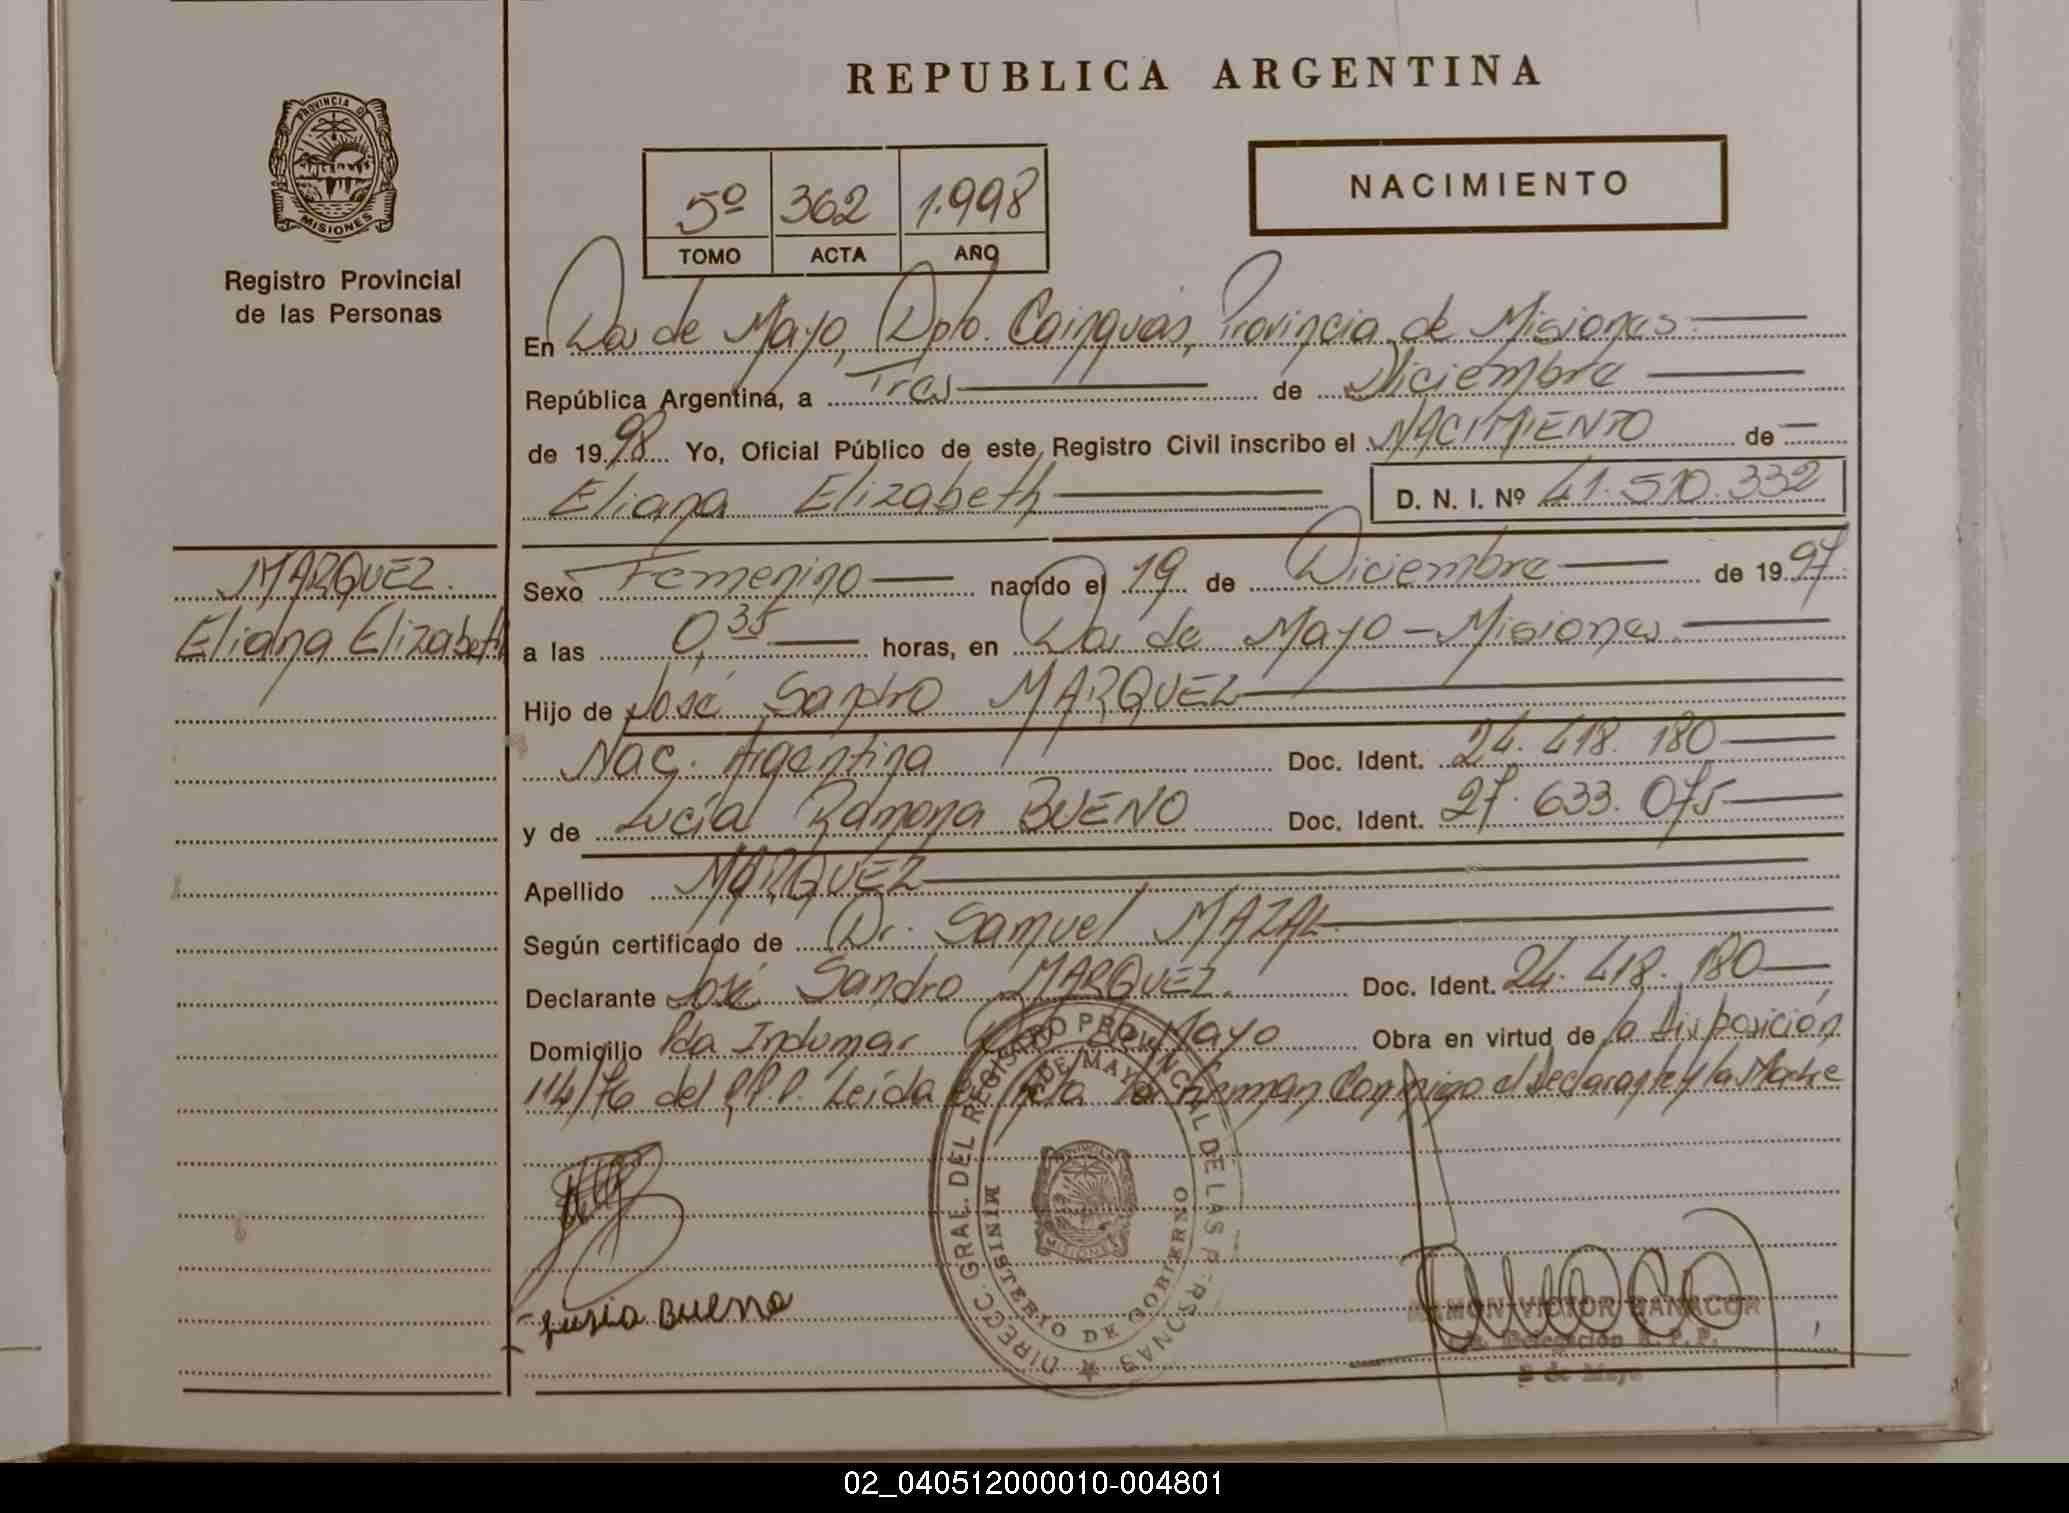 REPUBLICA ARGENTINA
PROVINCIA DE
MISIONES
Registro Provincial
de las Personas
5º 362 1.998
TOMO ACTA AÑO
NACIMIENTO
En Dos de Mayo, Dpto. Cainguas, Provincia de Misiones.
República Argentina, a Tres de Diciembre
de 1998 Yo, Oficial Público de este Registro Civil inscribo el NACIMIENTO de
Eliana Elizabeth D. N. I. Nº 41.510.332
MARQUEZ.
Eliana Elizabeth
Sexo Femenino nacido el 19 de Diciembre de 1997
a las 0,35 horas, en Dos de Mayo - Misiones.
Hijo de José Sandro MARQUEZ
Nac. Argentina Doc. Ident. 24.418.180
y de Lucía Ramona BUENO Doc. Ident. 27.633.075
Apellido MARQUEZ
Según certificado de Dr. Samuel MAZAL
Declarante José Sandro MARQUEZ. Doc. Ident. 24.418.180
Domicilio Pda Indumar Mayo Obra en virtud de la disposición
114/76 del R.P.P. Leída el Acta la firman Conmigo el Declarante y la Madre
DIRECC. GRAL. DEL REGISTRO PROVINCIAL DE LAS PERSONAS
2 DE MAYO
MINISTERIO DE GOBIERNO
PROVINCIA DE
MISIONES
Lusia Bueno
RAMON VICTOR
Delegación R. P. P.
2 de Mayo
02_040512000010-004801